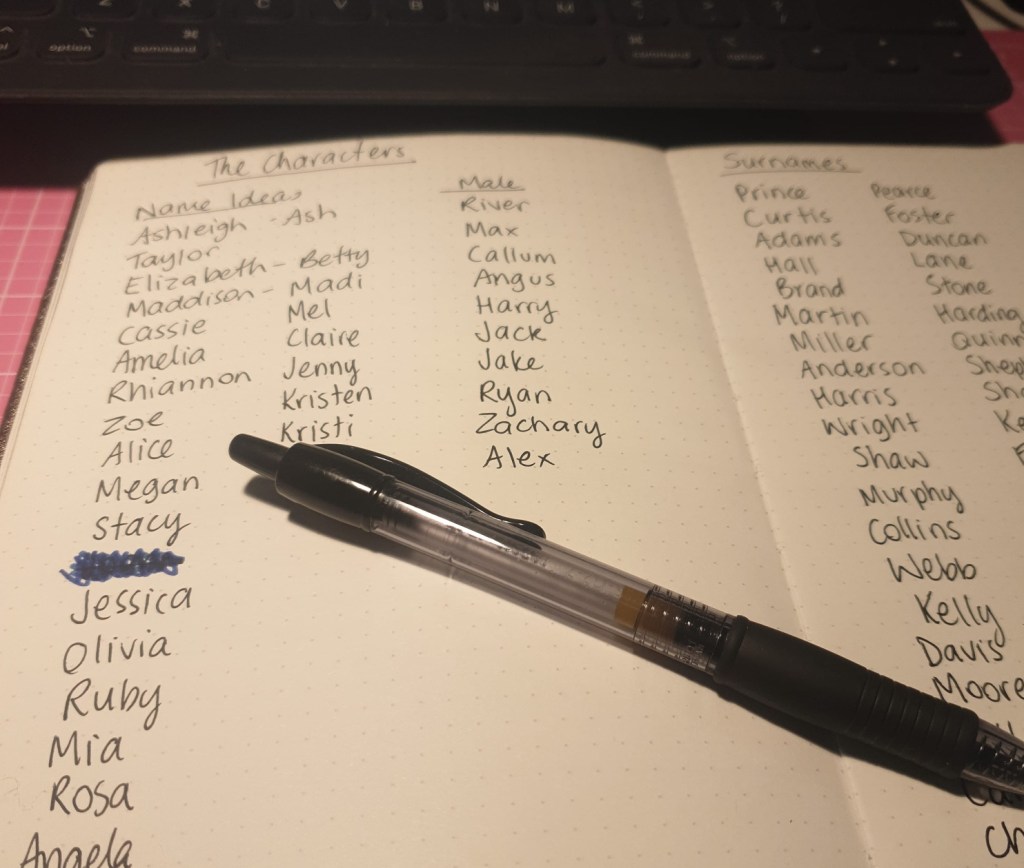 X C V B N M
option command command option
The Characters
Name Ideas
Ashleigh - Ash
Taylor
Elizabeth - Betty
Maddison - Madi
Cassie
Amelia
Rhiannon
Zoe
Alice
Megan
Stacy
Jessica
Olivia
Ruby
Mia
Rosa
Angela
Mel
Claire
Jenny
Kristen
Kristi
Male
River
Max
Callum
Angus
Harry
Jack
Jake
Ryan
Zachary
Alex
Surnames
Prince
Curtis
Adams
Hall
Brand
Martin
Miller
Anderson
Harris
Wright
Shaw
Murphy
Collins
Webb
Kelly
Davis
Moore
Pearce
Foster
Duncan
Lane
Stone
Harding
Quinn